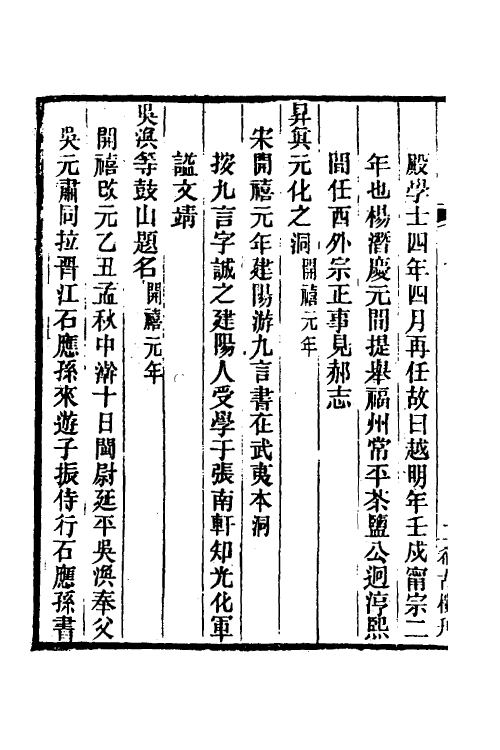 殿學士四年四月再任故曰越明年壬戌甯宗二
年也楊濳慶元間提舉福州常平茶鹽公迥淳熙
間任西外宗正事見郝志
昇真元化之洞開禧元年
宋開禧元年建陽游九言書在武夷本洞
按九言字誠之建陽人受學于張南軒知光化軍
諡文靖
吳渙等鼓山題名開禧元年
開禧改元乙丑孟秋中澣十日閩尉延平吳渙奉父
吳元肅同拉晉江石應孫來遊子振侍行石應孫書